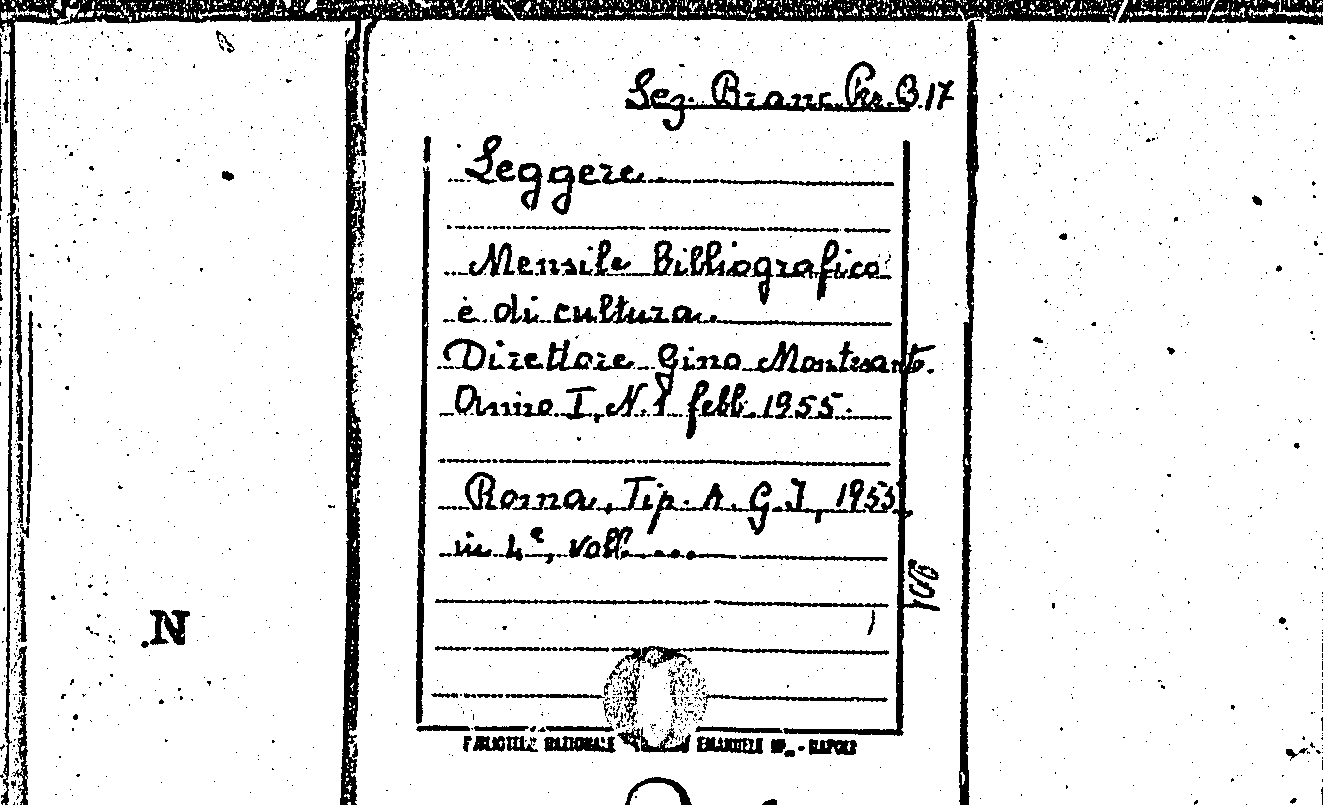 Sez. Branc. Per. B.17
Leggere.
Mensile bibliografico
e di cultura.
Direttore Gino Montesanto.
Anno I, N.1 febb. 1955.
Roma, Tip. A. G. I, 1955,
in 4°, voll. ....
106
N
BIBLIOTECA NAZIONALE EMANUELE III - NAPOLI